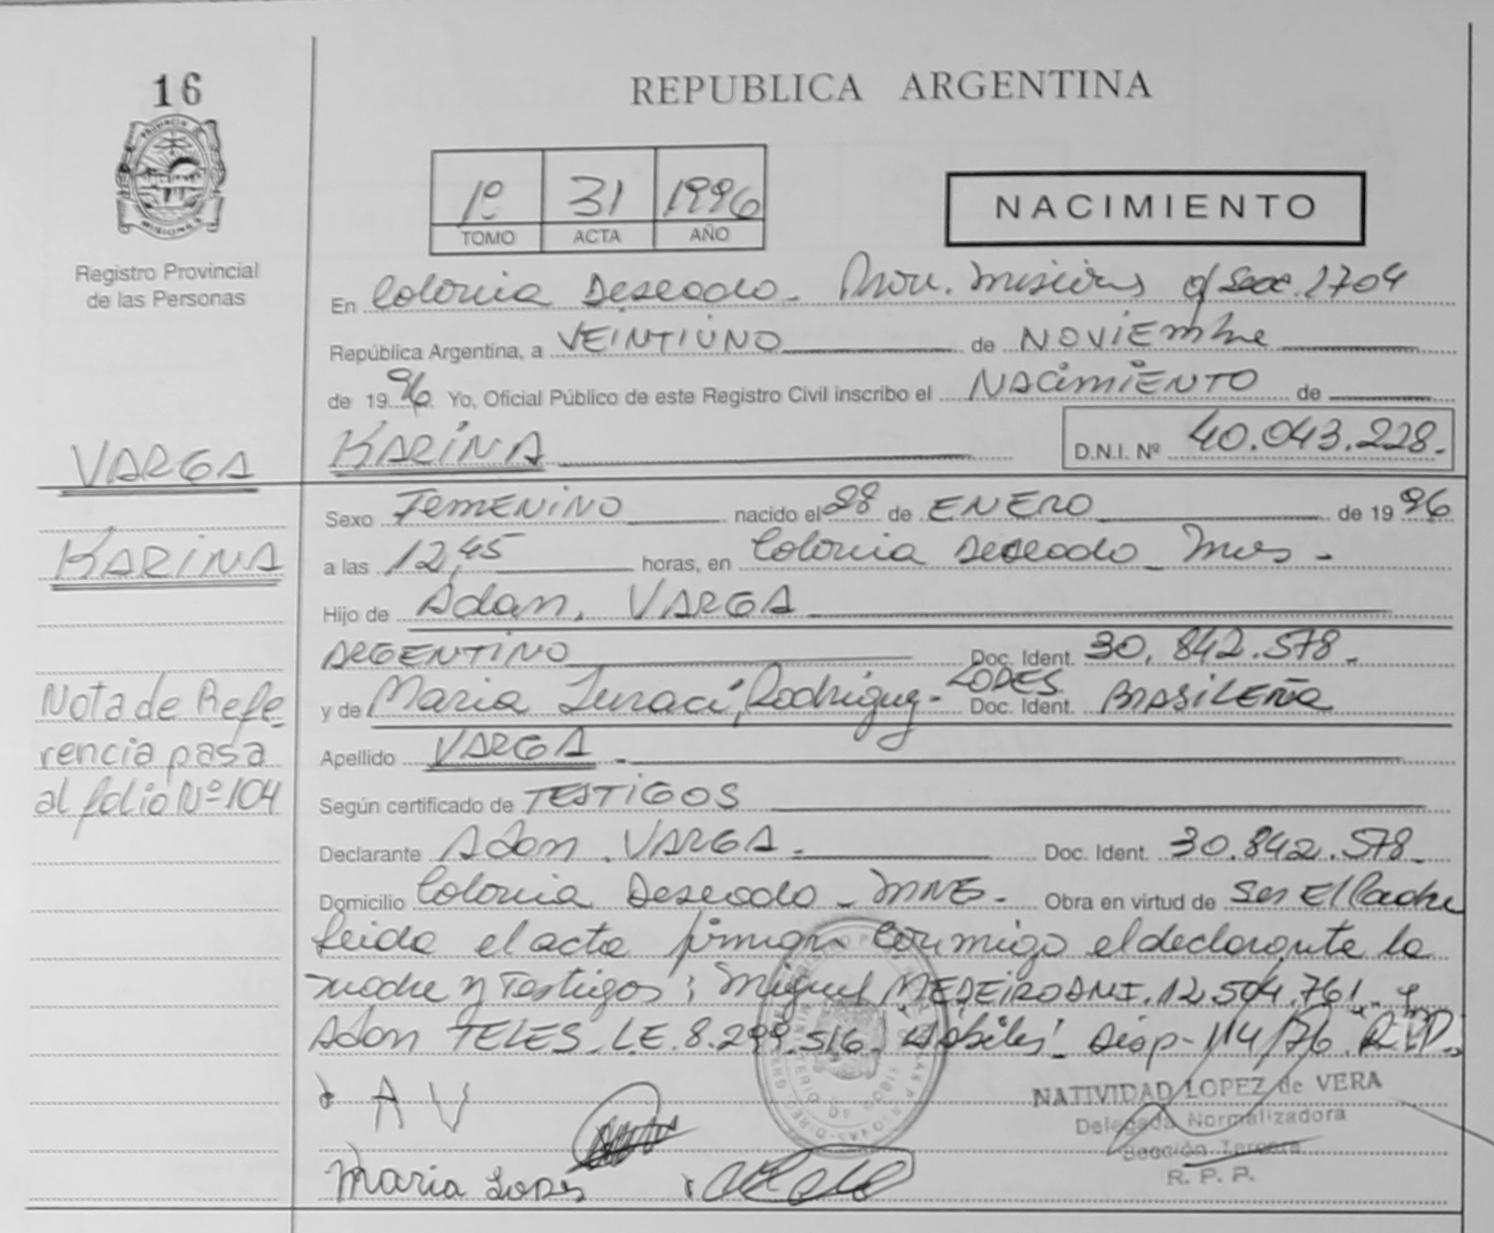 16
REPUBLICA ARGENTINA
PROVINCIA DE MISIONES
Registro Provincial
de las Personas
1º 31 1996
TOMO ACTA AÑO
NACIMIENTO
En Colonia Deseado - Prov. Misiones of Secc. 1704
República Argentina, a VEINTIUNO de NOVIEMbre
de 1996 Yo, Oficial Público de este Registro Civil inscribo el NACIMIENTO de
KARINA D.N.I. Nº 40.043.228.-
VARGA
KARINA
Sexo FEMENINO nacido el 28 de ENERO de 1996
a las 12,45 horas, en Colonia Deseado - Mnes -
Hijo de Adan, VARGA
ARGENTINO Doc. Ident. 30.842.578.-
y de Maria Iuraci, Rodriguez - LOPES Doc. Ident. BRASILEÑA
Apellido VARGA
Según certificado de TESTIGOS
Declarante Adan. VARGA.- Doc. Ident. 30.842.578.-
Domicilio Colonia Deseado - MNES.- Obra en virtud de Ser El Padre
Leida el acta firman conmigo el declarante la
madre y Testigos; Miguel MEDEIRO DNI.12.504.761.- y
Adan TELES. L.E. 8.299.516. Habiles! Disp-114/76 R.P.P.
Nota de Refe
rencia pasa
al folio Nº 104
A V
Maria Lopes
NATIVIDAD LOPEZ de VERA
Delegada Normalizadora
Sección Tercera
R. P. P.